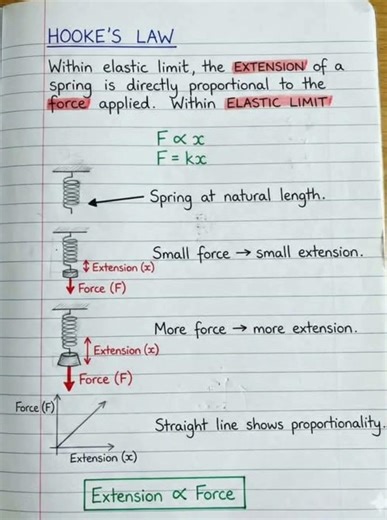 HOOKE'S LAW
Within elastic limit, the EXTENSION of a
spring is directly proportional to the
force applied. Within ELASTIC LIMIT
F ∝ x
F = kx
Spring at natural length.
Small force → small extension.
Extension (x)
Force (F)
More force → more extension.
Extension (x)
Force (F)
Force (F)
Straight line shows proportionality.
Extension (x)
Extension ∝ Force